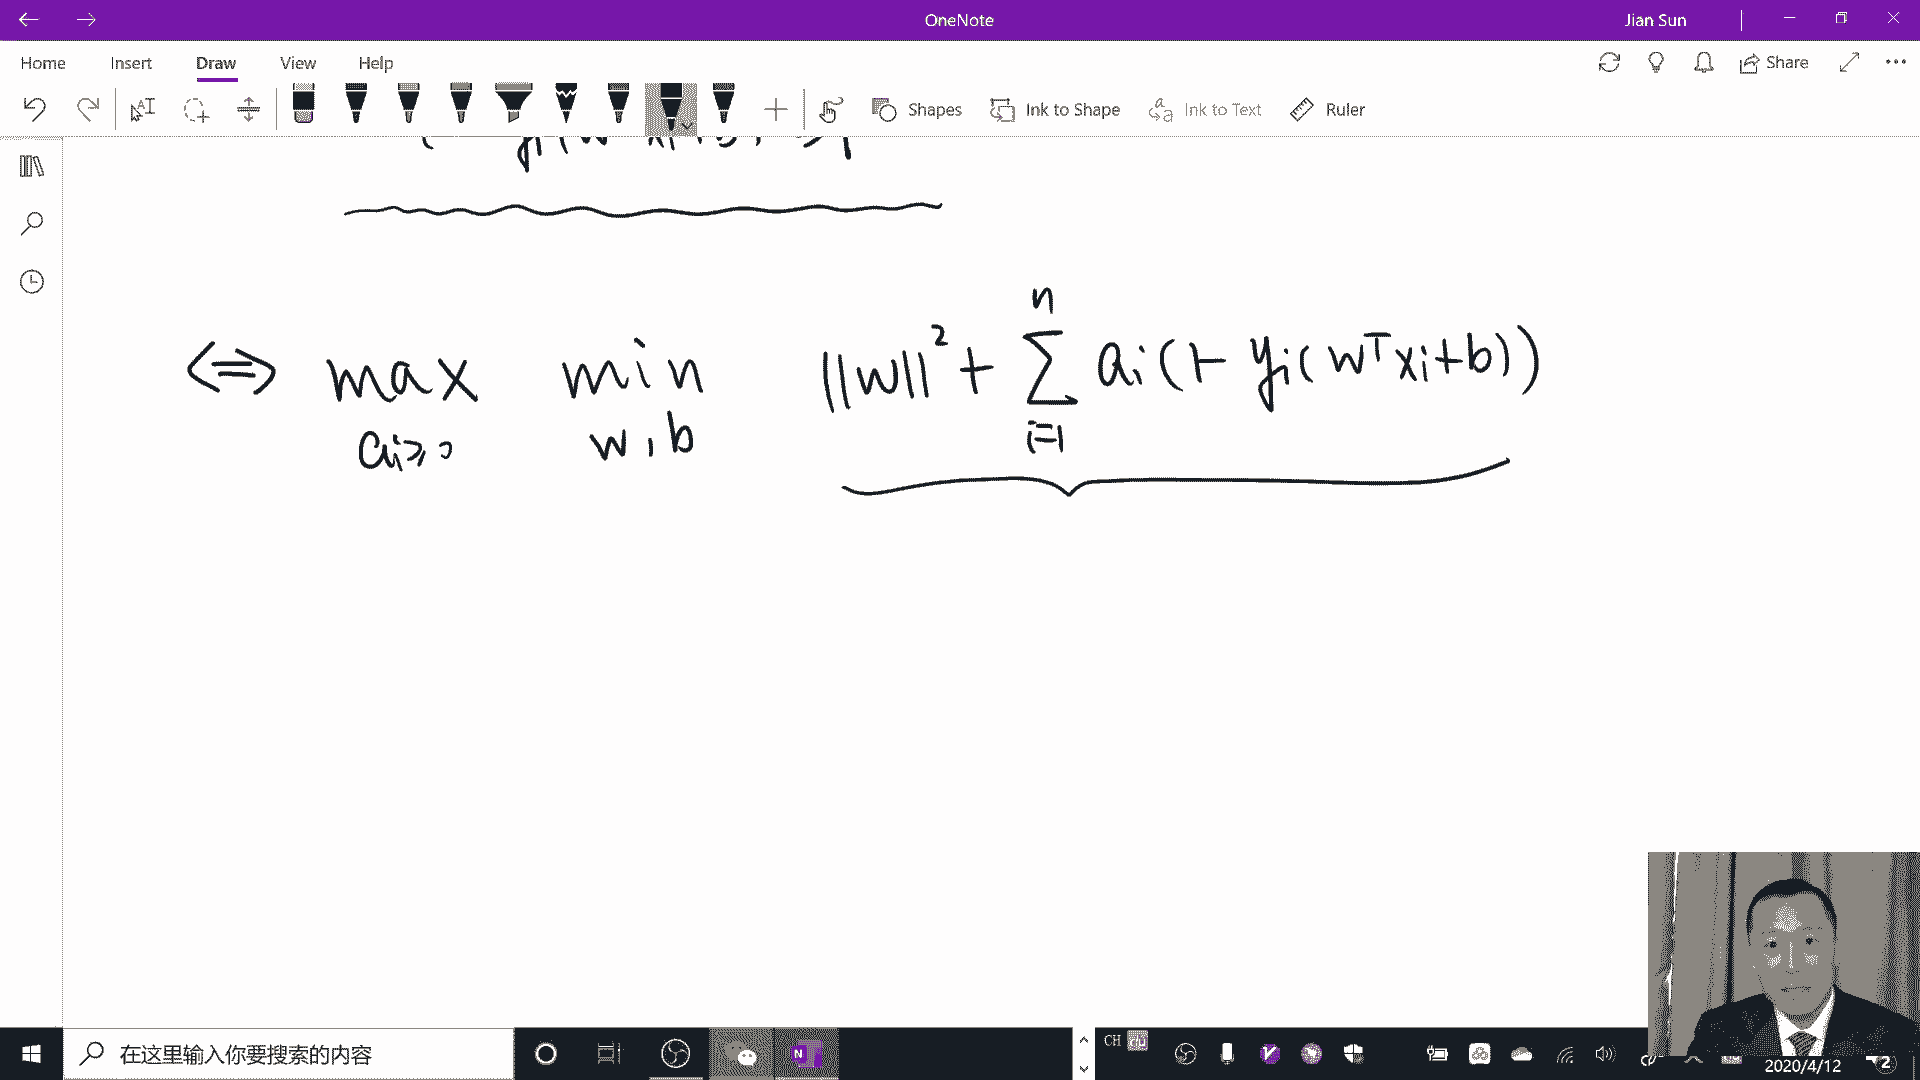 OneNote
Jian Sun
Home Insert Draw View Help
Share
Shapes
Ink to Shape
Ink to Text
Ruler
⟺ max min ||w||² + Σ aᵢ(1 - yᵢ(wᵀxᵢ+b))
n
aᵢ≥0 w, b i=1
在这里输入你要搜索的内容
CH
2020/4/12
2